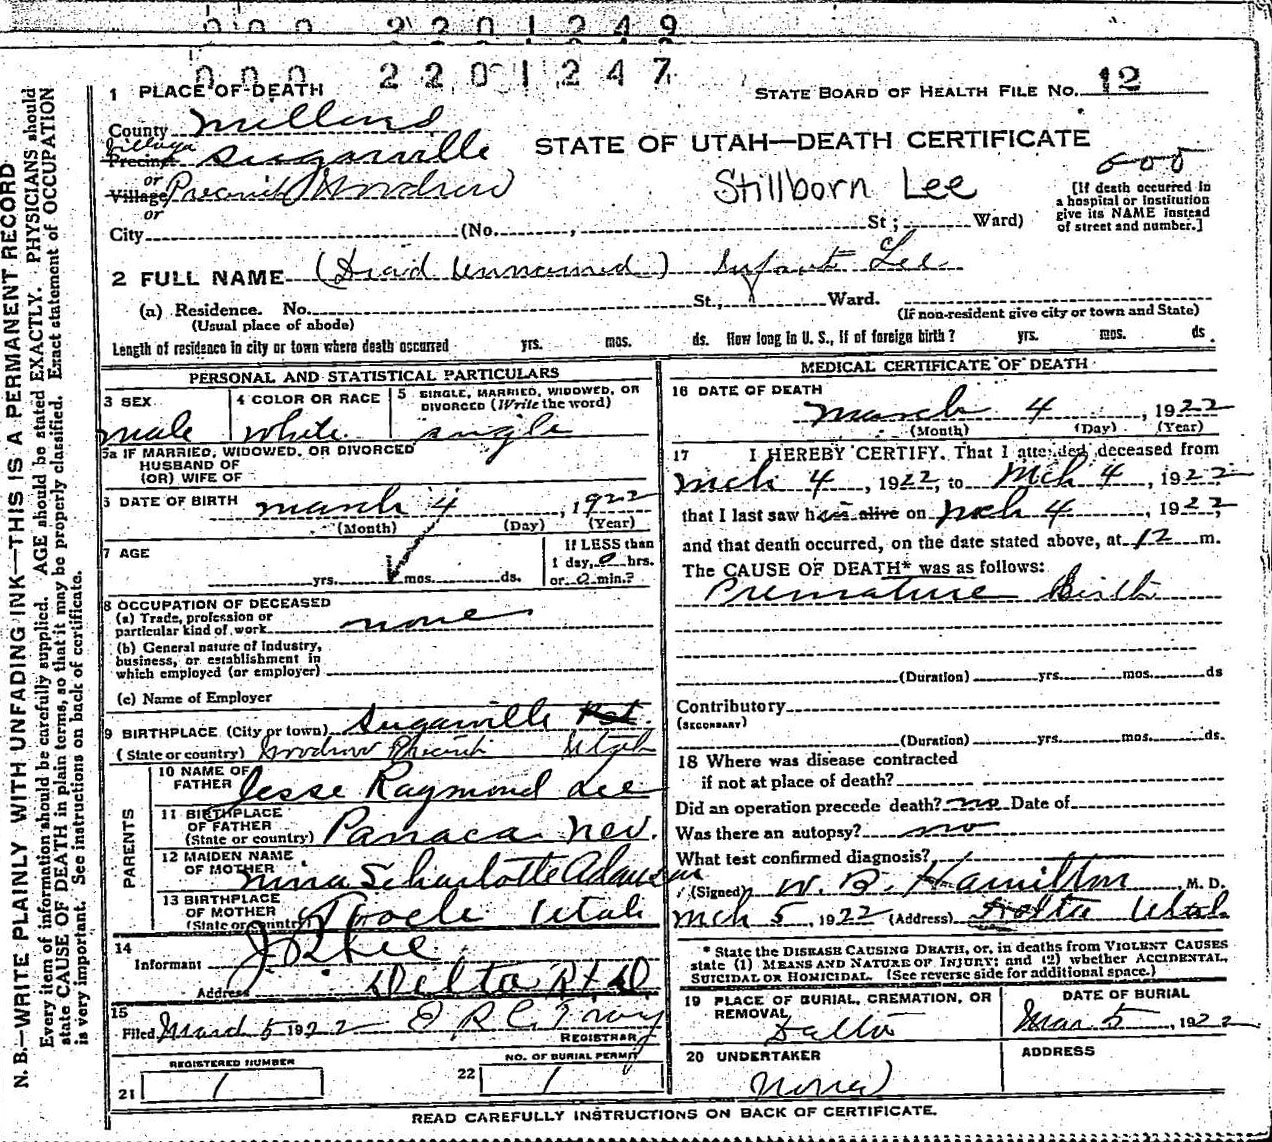 0 0 0 2 2 0 1 2 4 9
0 0 0 2 2 0 1 2 4 7
1 PLACE OF DEATH
STATE BOARD OF HEALTH FILE NO. 12
County Millard
STATE OF UTAH—DEATH CERTIFICATE
Village Precinct Sugarville
or
Village Precinct Woodrow
Stillborn Lee
[If death occurred in
a hospital or institution
give its NAME instead
of street and number.]
or
City (No. , St; Ward)
2 FULL NAME (Dead Unnamed) Infant Lee
(a) Residence. No. St., Ward.
(Usual place of abode)
(If non-resident give city or town and State)
Length of residence in city or town where death occurred yrs. mos. ds. How long in U. S., if of foreign birth? yrs. mos. ds.
PERSONAL AND STATISTICAL PARTICULARS
3 SEX
male
4 COLOR OR RACE
white
5 SINGLE, MARRIED, WIDOWED, OR
DIVORCED (Write the word)
single
5a IF MARRIED, WIDOWED, OR DIVORCED
HUSBAND OF
(OR) WIFE OF
6 DATE OF BIRTH march 4, 1922
(Month) (Day) (Year)
7 AGE
yrs. mos. ds.
If LESS than
1 day, 0 hrs.
or 0 min.?
8 OCCUPATION OF DECEASED
(a) Trade, profession or
particular kind of work none
(b) General nature of Industry,
business, or establishment in
which employed (or employer)
(c) Name of Employer
9 BIRTHPLACE (City or town) Sugarville
(State or country) Woodrow Precinct Utah
PARENTS
10 NAME OF
FATHER Jesse Raymond Lee
11 BIRTHPLACE
OF FATHER
(State or country) Panaca Nev.
12 MAIDEN NAME
OF MOTHER Nina Scharlotte Adamson
13 BIRTHPLACE
OF MOTHER
(State or country) Tooele Utah
14
Informant J R Lee
Address Delta R.F.D.
15
Filed March 5 1922
REGISTRAR
REGISTERED NUMBER
21 1
NO. OF BURIAL PERMIT
22 1
MEDICAL CERTIFICATE OF DEATH
16 DATE OF DEATH
march 4, 1922
(Month) (Day) (Year)
17 I HEREBY CERTIFY, That I attended deceased from
Mch 4, 1922, to Mch 4, 1922
that I last saw him alive on Mch 4, 1922,
and that death occurred, on the date stated above, at 12 m.
The CAUSE OF DEATH* was as follows:
Premature Birth
(Duration) yrs. mos. ds
Contributory
(SECONDARY)
(Duration) yrs. mos. ds.
18 Where was disease contracted
if not at place of death?
Did an operation precede death? no Date of
Was there an autopsy? no
What test confirmed diagnosis?
(Signed) W. B. Hamilton M. D.
Mch 5, 1922 (Address) Delta Utah
* State the DISEASE CAUSING DEATH, or, in deaths from VIOLENT CAUSES
state (1) MEANS AND NATURE OF INJURY; and (2) whether ACCIDENTAL,
SUICIDAL OR HOMICIDAL. (See reverse side for additional space.)
19 PLACE OF BURIAL, CREMATION, OR
REMOVAL
Delta
DATE OF BURIAL
Mar 5, 1922
20 UNDERTAKER
ADDRESS
READ CAREFULLY INSTRUCTIONS ON BACK OF CERTIFICATE.
N. B.—WRITE PLAINLY WITH UNFADING INK—THIS IS A PERMANENT RECORD
Every item of information should be carefully supplied. AGE should be stated EXACTLY. PHYSICIANS should
state CAUSE OF DEATH in plain terms, so that it may be properly classified. Exact statement of OCCUPATION
is very important. See instructions on back of certificate.